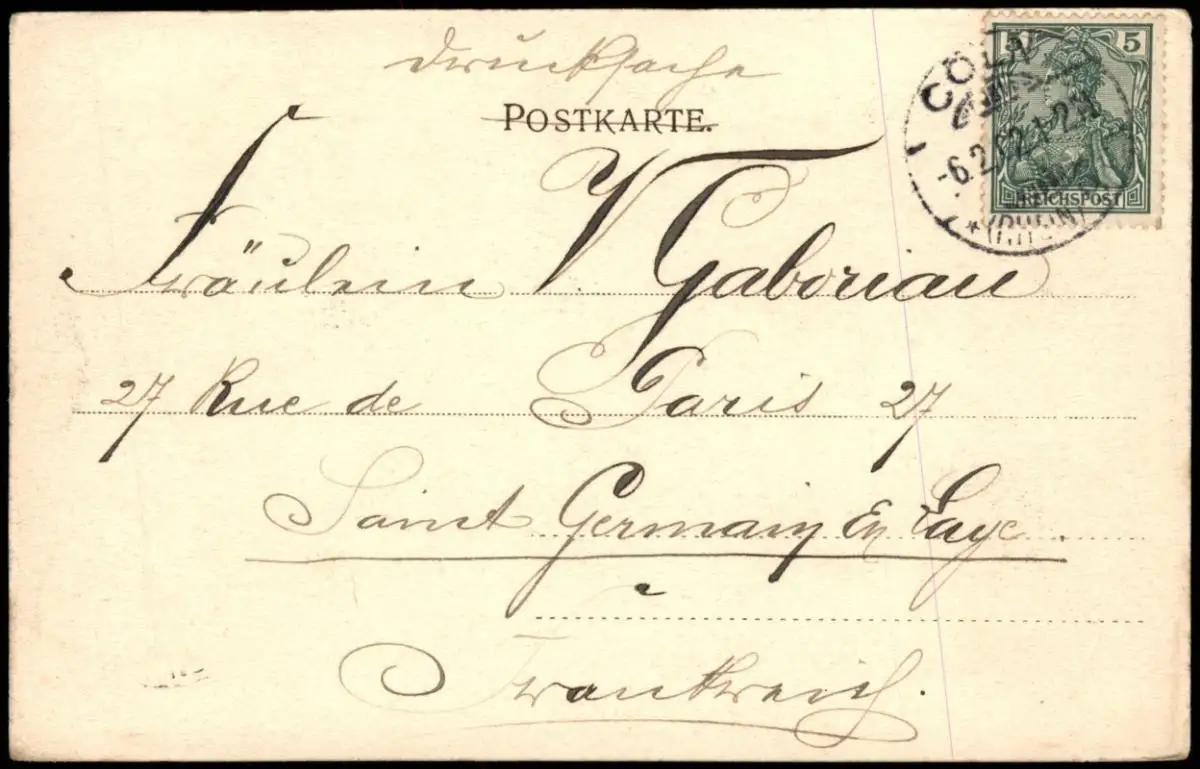 Drucksache
POSTKARTE.
5 5
REICHSPOST
CÖLN
-6.2.02.1-2N
*(RHEIN)
Fräulein V. Gaboriau
27 Rue de Paris 27
Saint Germain En Laye.
Frankreich.